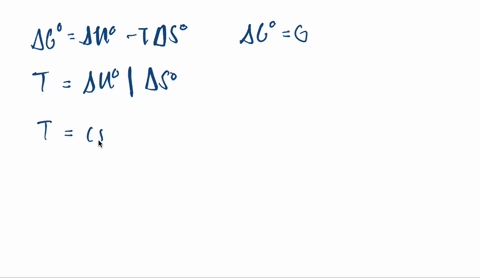 ΔG° = ΔH° - TΔS° ΔG° = G
T = ΔH° | ΔS°
T = (s